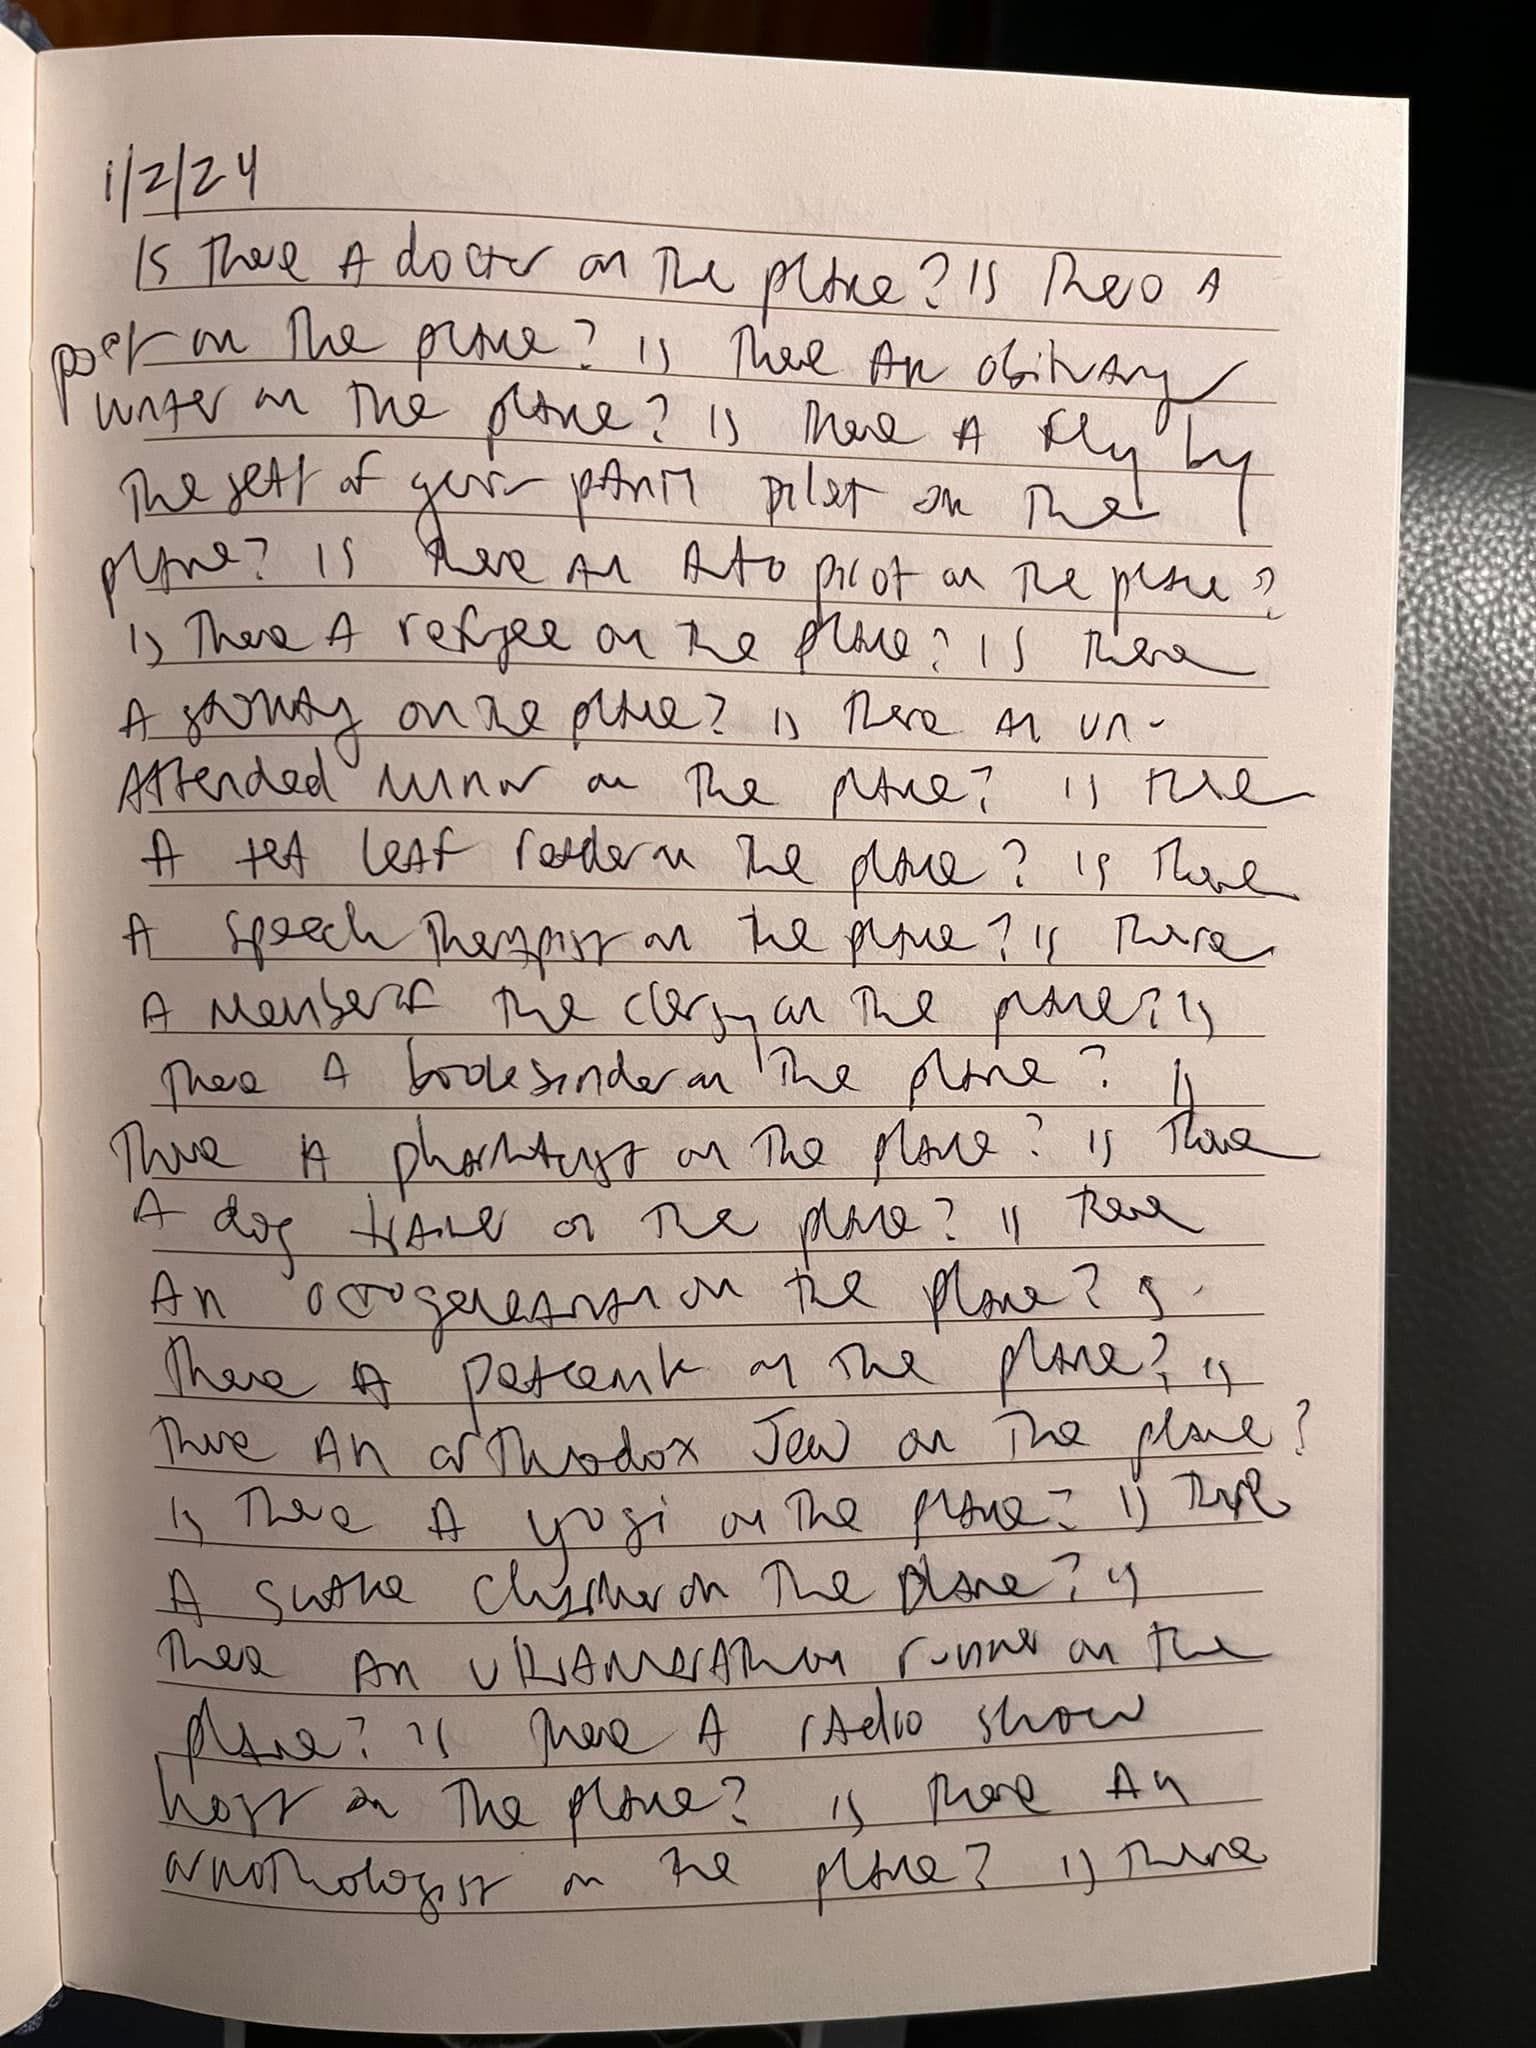 1/2/24
Is there A doctor on the plane? Is there A
poet on the plane? Is there An obituary
writer on the plane? Is there A fly by
the seat of your pants pilot on the
plane? Is there An Auto pilot on the plane?
Is there A refugee on the plane? Is there
A on the plane? Is there An un-
Attended minor on the plane? Is there
A tea leaf reader on the plane? Is there
A speech therapist on the plane? Is there
A member of the clergy on the plane? Is
there A bookbinder on the plane? Is
there A pharmacist on the plane? Is there
A dog trainer on the plane? Is there
An octogenarian on the plane? Is
there A on the plane? Is
there An orthodox Jew on the plane?
Is there A yogi on the plane? Is there
A snake charmer on the plane? Is
there An ultramarathon runner on the
plane? Is there A radio show
host on the plane? Is there An
ornithologist on the plane? Is there